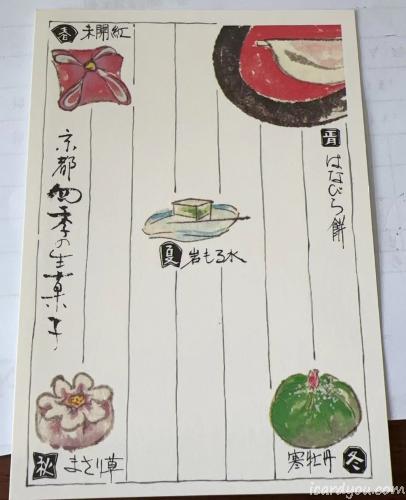 春 未開紅
はなびら餅
京都四季の生菓子
夏 岩もる水
秋 まさり草
寒牡丹 冬
icardyou.com